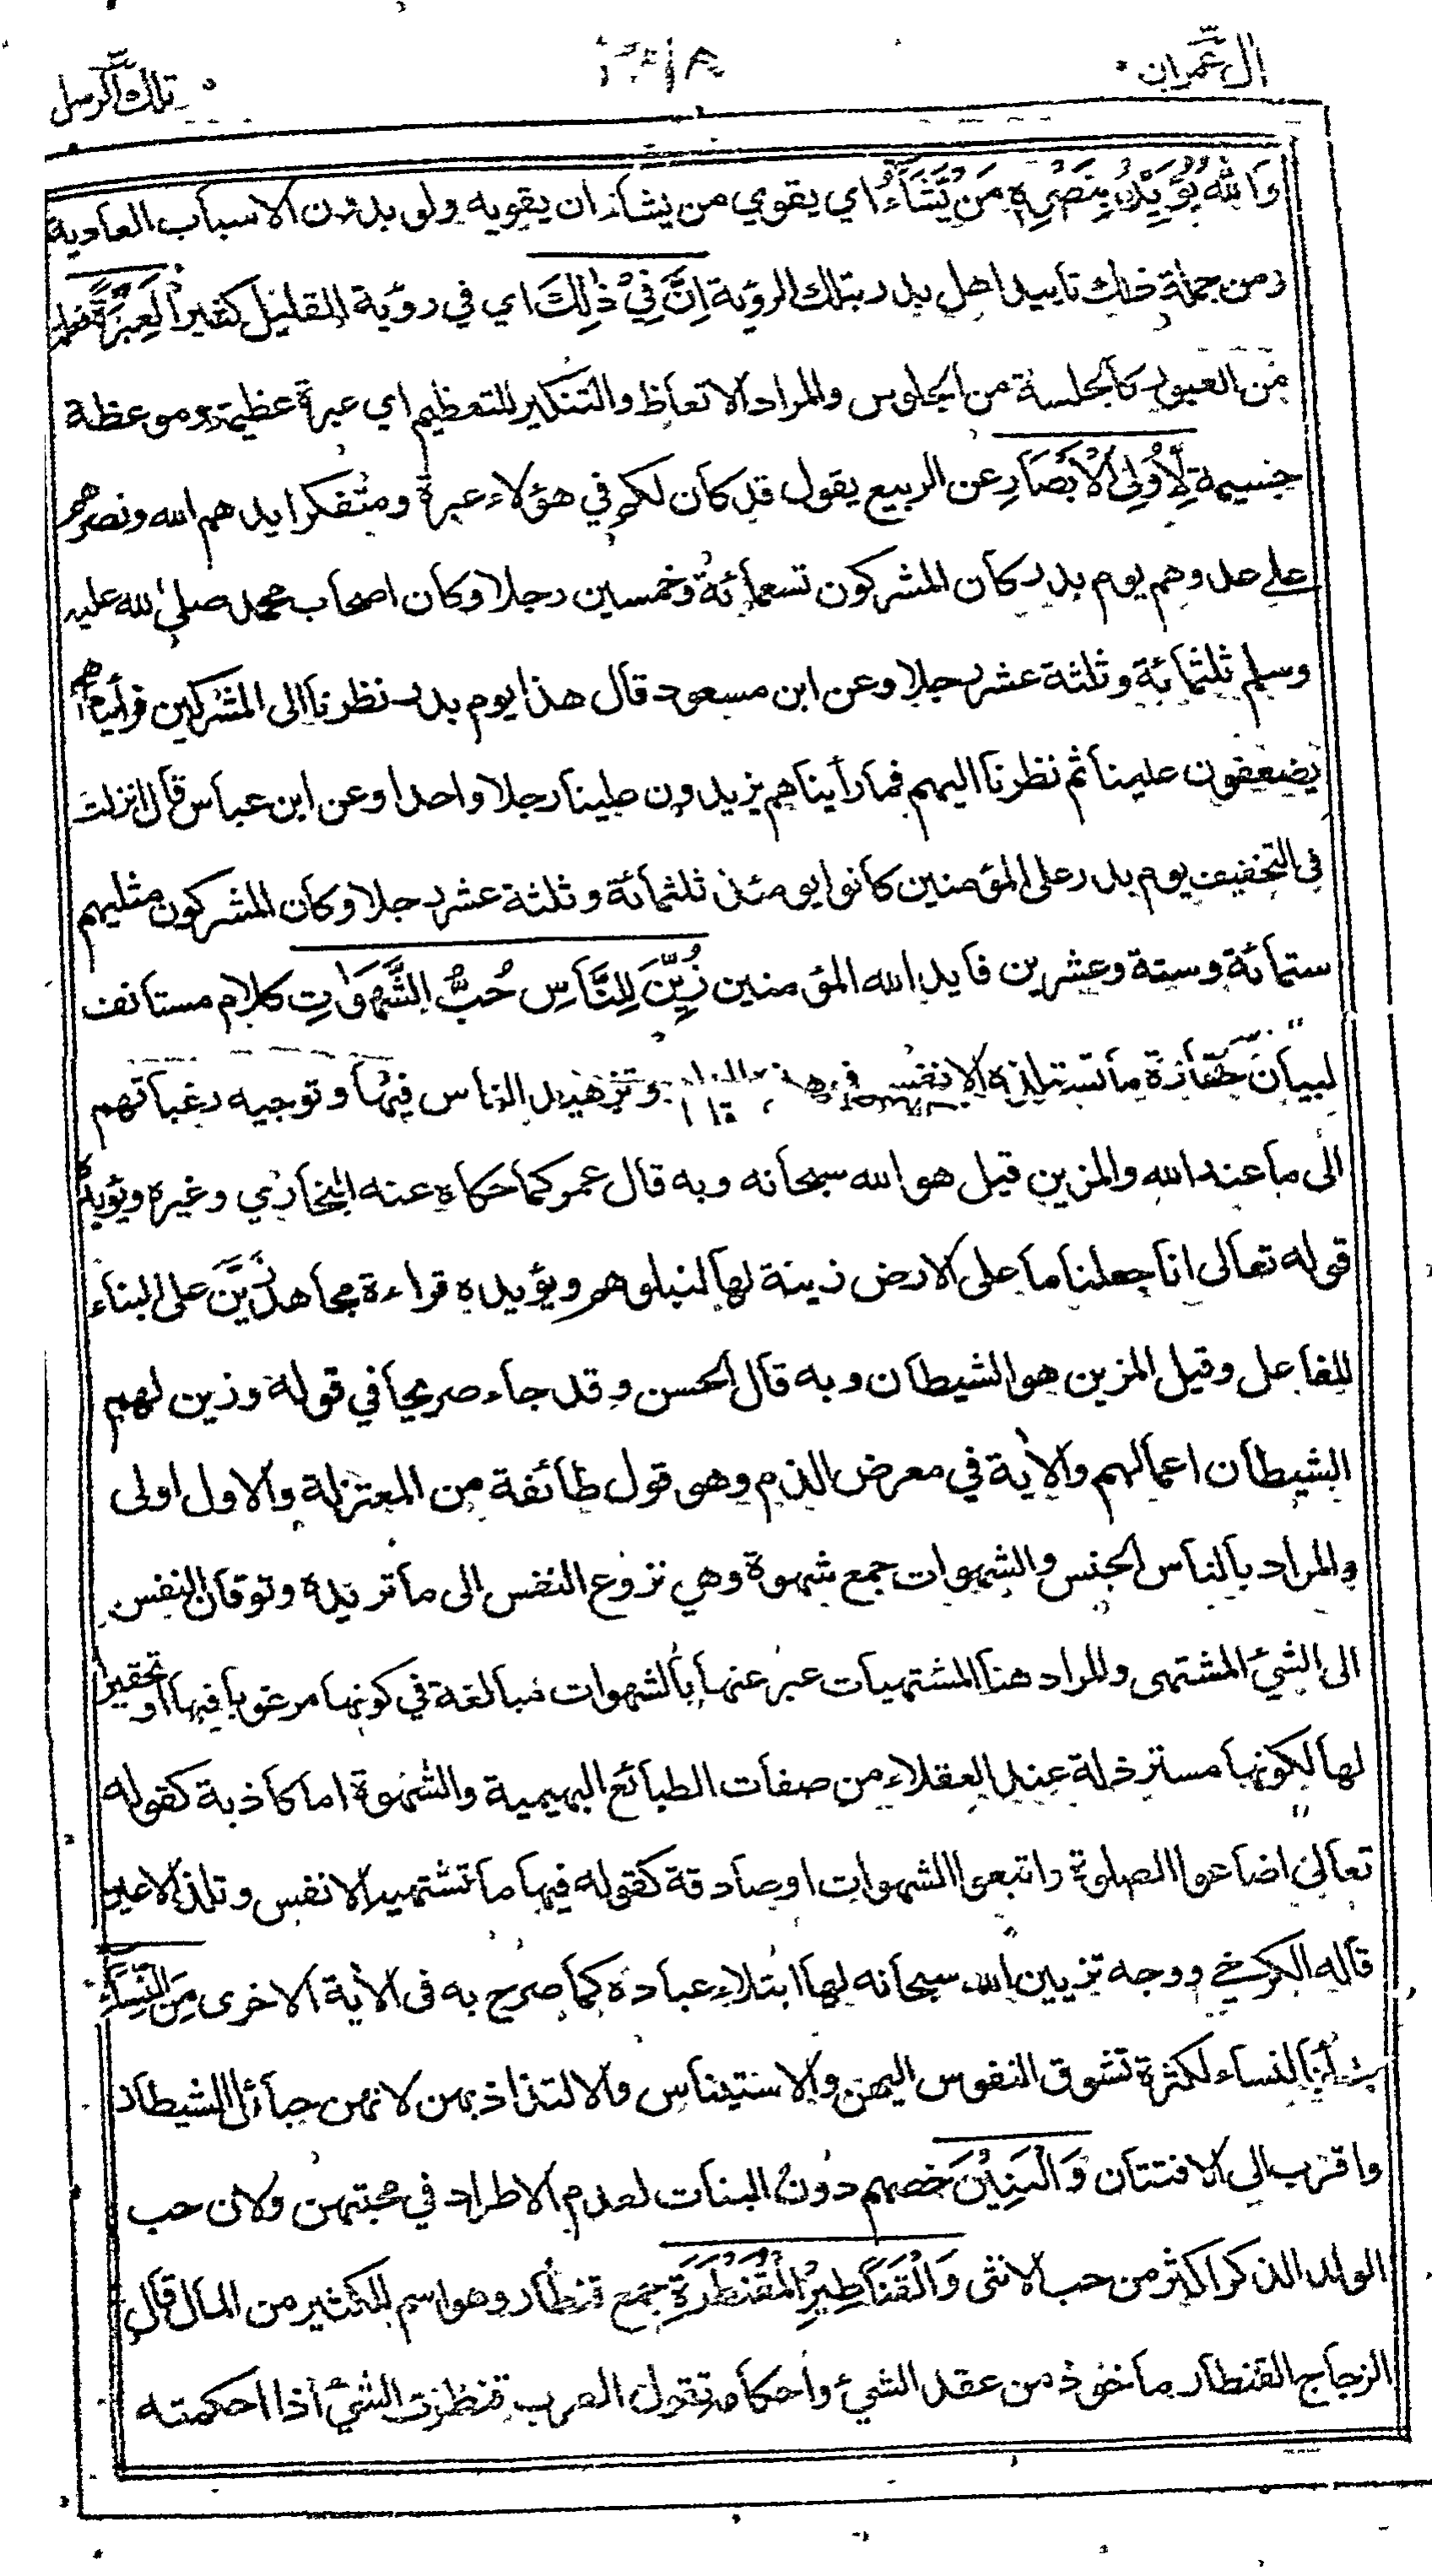 اٰل عمران
تلك الرسل
وَاللّٰهُ يُؤَيِّدُ بِنَصْرِهٖ مَنْ يَّشَآءُ اي يقوي من يشاء ان يقويه ولو بدون الاسباب العادية
ومن جملة ذلك تاييد اهل بدر بتلك الروية اِنَّ فِيْ ذٰلِكَ اي في رؤية القليل كثيرا لَعِبْرَةً فعلة
من العبور كالجلسة من الجلوس والمراد الاتعاظ والتنكير للتعظيم اي عبرة عظيمة وموعظة
جسيمة لِّاُولِى الْاَبْصَارِ عن الربيع يقول قد كان لكم في هؤلاء عبرة ومتفكر ايدهم الله ونصرهم
على عدوهم يوم بدر كان المشركون تسعمائة وخمسين رجلا وكان اصحاب محمد صلى الله عليه
وسلم ثلثمائة وثلثة عشر رجلا وعن ابن مسعود قال هذا يوم بدر نظرنا الى المشركين فرأيناهم
يضعفون علينا ثم نظرنا اليهم فما رأيناهم يزيدون علينا رجلا واحدا وعن ابن عباس قال انزلت
فى التخفيف يوم بدر على المؤمنين كانوا يومئذ ثلثمائة وثلثة عشر رجلا وكان المشركون مثليهم
ستمائة وستة وعشرين فايد الله المؤمنين زُيِّنَ لِلنَّاسِ حُبُّ الشَّهَوَاتِ كلام مستانف
لبيان حقارة ما تستلذه الانفس في هذه الدار وتزهيد الناس فيها وتوجيه رغباتهم
الى ما عند الله والمزين قيل هو الله سبحانه وبه قال عمر كما حكاه عنه البخاري وغيره ويؤيده
قوله تعالى انا جعلنا ما على الارض زينة لها لنبلوهم ويؤيده قراءة مجاهد زَيَّنَ على البناء
للفاعل وقيل المزين هو الشيطان وبه قال الحسن وقد جاء صريحا في قوله وزين لهم
الشيطان اعمالهم والاية في معرض الذم وهو قول طائفة من المعتزلة والاول اولى
والمراد بالناس الجنس والشهوات جمع شهوة وهي نزوع النفس الى ما تريده وتوقان النفس
الى الشئ المشتهى والمراد هنا المشتهيات عبر عنها بالشهوات مبالغة في كونها مرغوبا فيها او تحقيرا
لها لكونها مسترذلة عند العقلاء من صفات الطبائع البهيمية والشهوة اما كاذبة كقوله
تعالى اضاعوا الصلوة واتبعوا الشهوات او صادقة كقوله فيها ما تشتهيه الانفس وتلذ الاعين
قاله الكرخي ووجه تزيين الله سبحانه لها ابتلاء عباده كما صرح به فى الاية الاخرى مِنَ النِّسَآءِ
بدأ بالنساء لكثرة تشوق النفوس اليهن والاستيناس والالتذاذ بهن لانهن حبائل الشيطان
واقرب الى الافتتان وَالْبَنِيْنَ خصهم دون البنات لعدم الاطراد في محبتهن ولان حب
الولد الذكر اكثر من حب الانثى وَالْقَنَاطِيْرِ الْمُقَنْطَرَةِ جمع قنطار وهو اسم للكثير من المال قال
الزجاج القنطار ماخوذ من عقد الشئ واحكامه تقول العرب قنطرت الشئ اذا احكمته